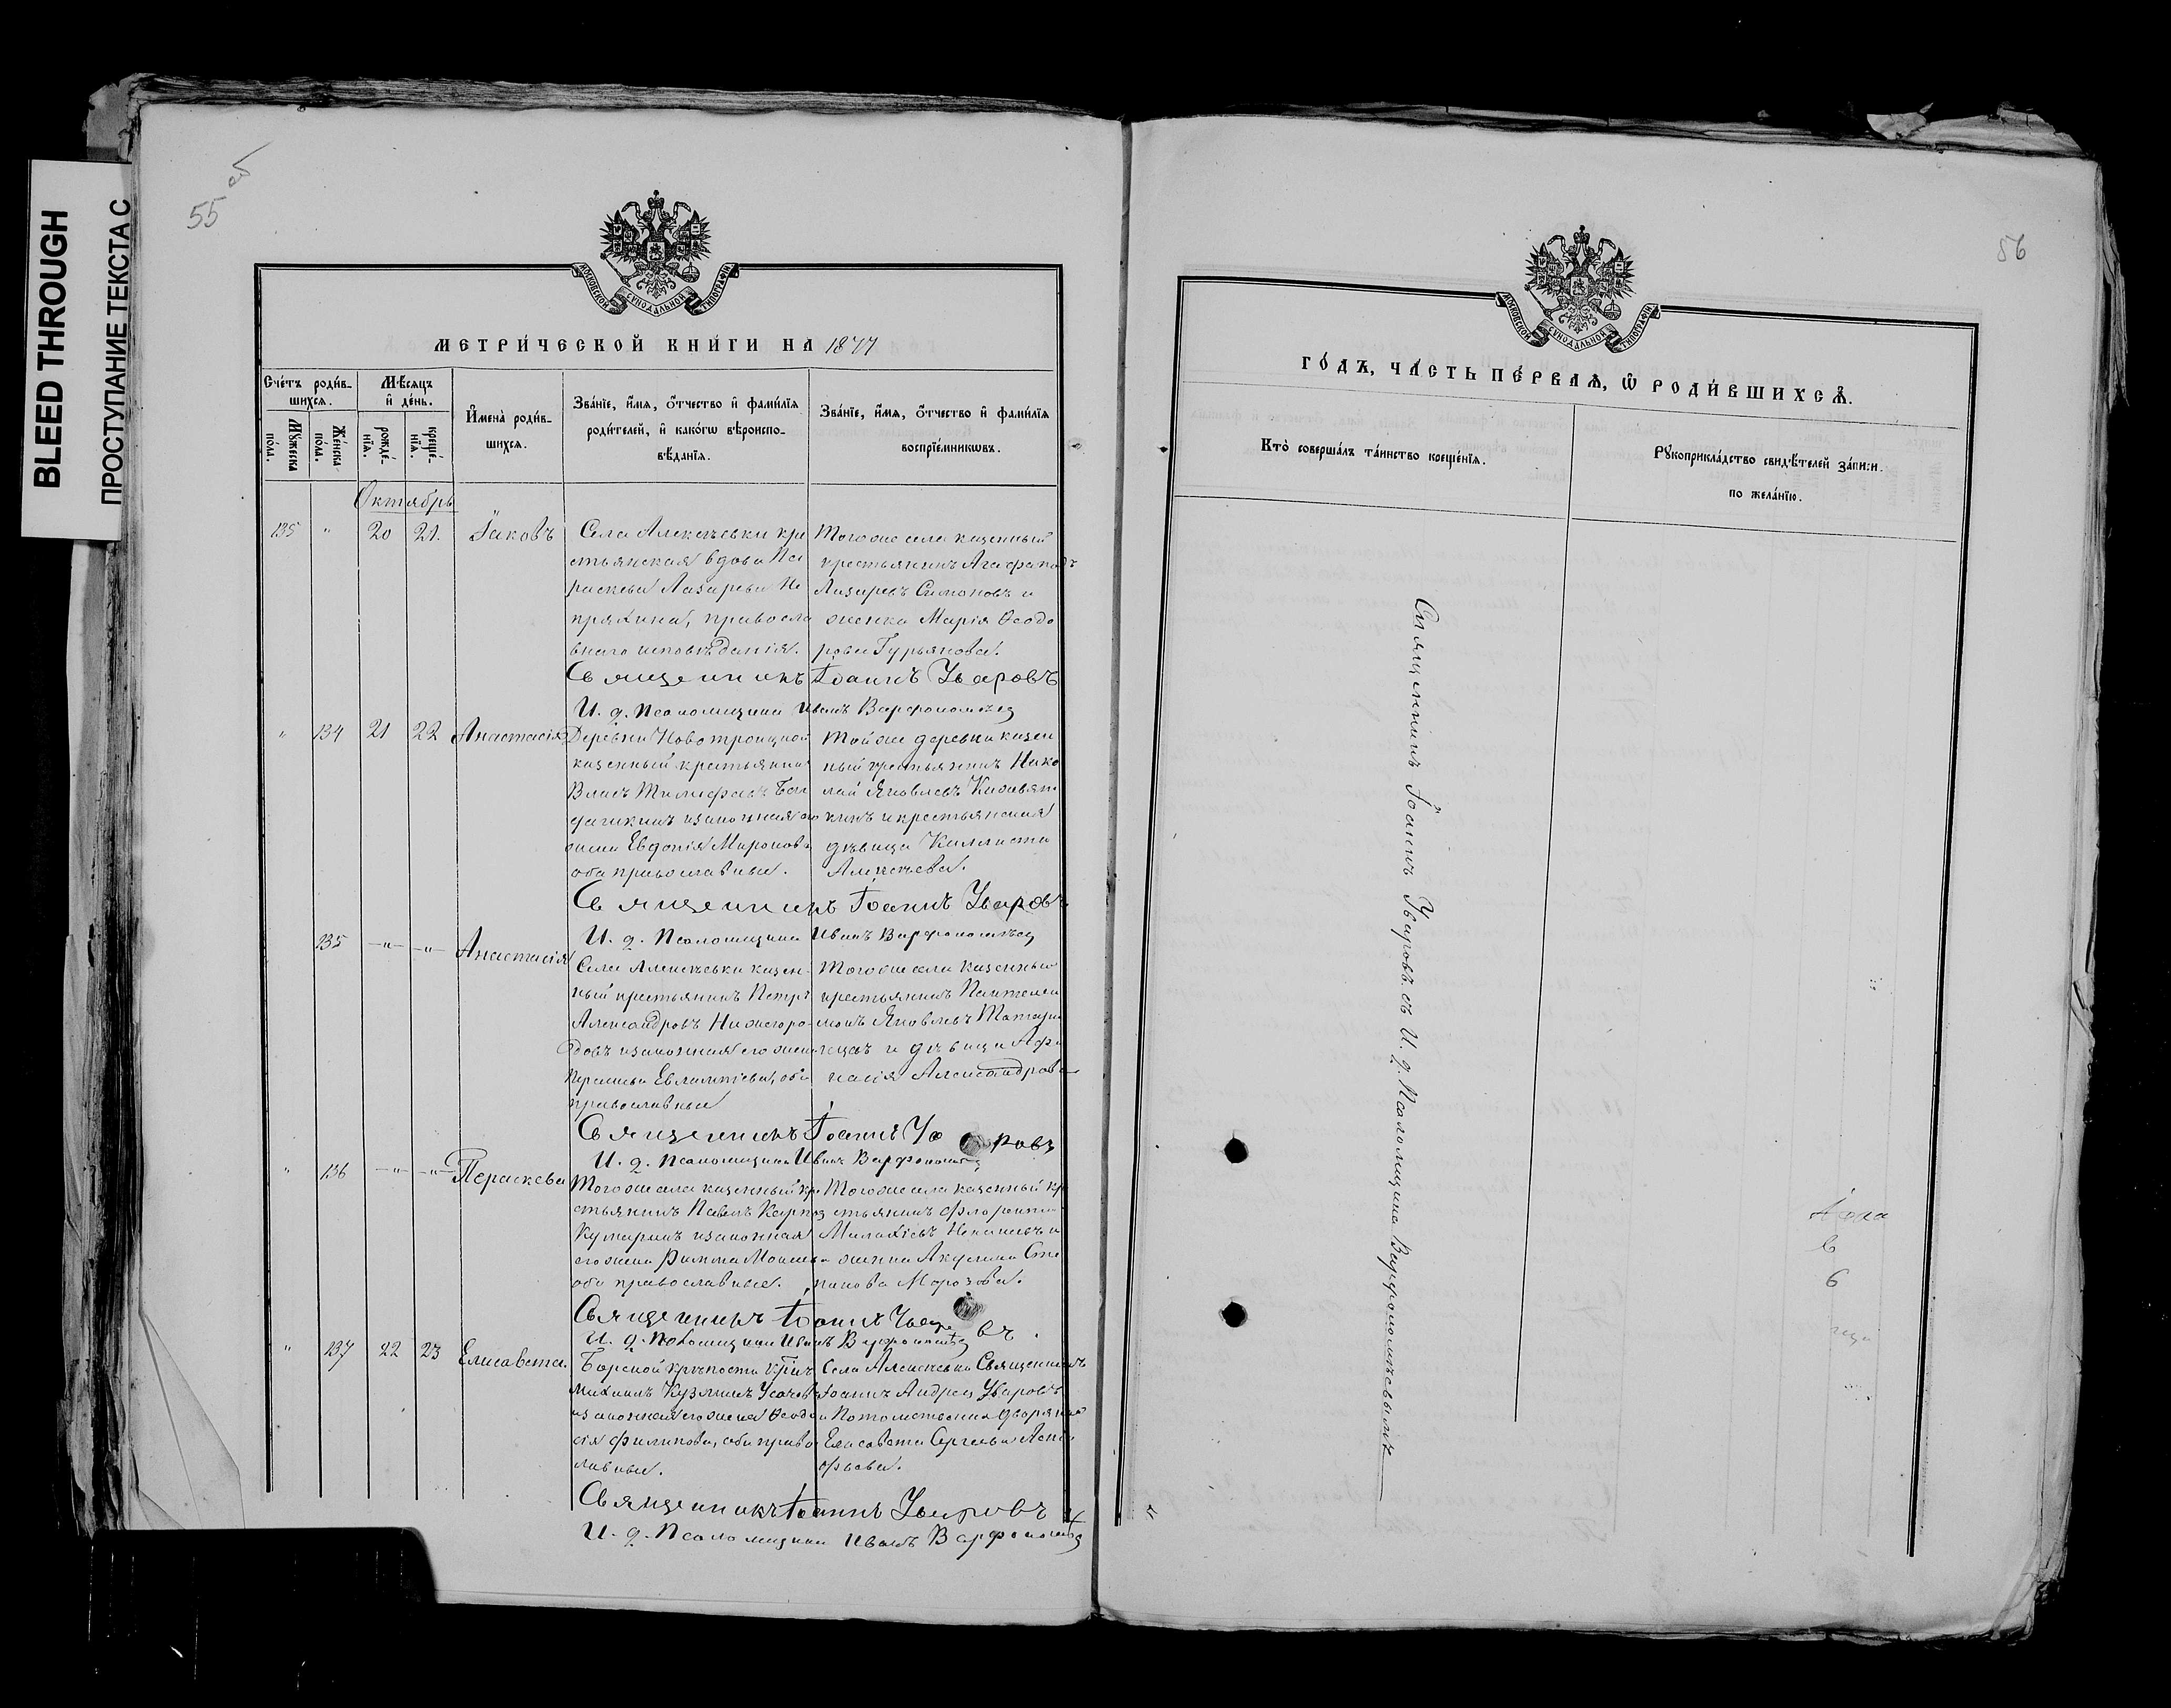 BLEED THROUGH
ПРОСТУПАНИЕ ТЕКСТА С
55 об
МОСКОВСКОЙ СѴНОДАЛЬНОЙ ТИПОГРАФІИ
МЕТРИ́ЧЕСКОЙ КНИ́ГИ НА 1877
Сче́тъ роди́вшихсѧ.
Мꙋжеска по́ла.
Же́нска по́ла.
Мѣ́сяцъ и҆ де́нь.
рожде́нїѧ.
креще́нїѧ.
И҆мена̀ роди́вшихсѧ.
Зва́нїе, и҆́мѧ, ѻ҆́тчество и҆ фами́лїѧ роди́телей, и҆ како́гѡ вѣроисповѣ́данїѧ.
Зва́нїе, и҆́мѧ, ѻ҆́тчество и҆ фами́лїѧ воспрїе́мникѡвъ.
Октябрь
135 " 20 21. Іаковъ
Села Алексѣевки кре
стьянская вдова Па
раскева Лазарева Не
пряхина, правосла
внаго исповѣданія.
Того же села казенный
крестьянинъ Агафаподъ
Лазаревъ Симоновъ и
женка Марія Ѳеодо
рова Гурьянова.
Священникъ Іоаннъ Уваровъ
И. д. Псаломщика Иванъ Варфоломѣев
" 134 21 22 Анастасія
Деревни Новотроицкой
казенный крестьянинъ
Власъ
законная его
жена Евдокія Миронова
оба православные.
Той же деревни казен
ный крестьянинъ Нико
лай Яковлевъ
и крестьянская
дѣвица
Алексѣева.
Священникъ Іоаннъ Уваровъ
И. д. Псаломщика Иванъ Варфоломѣев
135 -"- -"- Анастасія
Села Алексѣевки казен-
ный крестьянинъ Петръ
Александровъ Нижегоро-
довъ и законная его жена
Евлампіева, оба
православные
Того же села казенный
крестьянинъ Пантелей
монъ Яковлевъ
и дѣвица Афа
насія Александрова
Священникъ Іоаннъ Уваровъ
И. д. Псаломщика Иванъ Варфоломѣев
" 136 -"- -"- Параскева
Того же села казенный кре
стьянинъ Павелъ Карпов
законная
его жена Римма Моисеева
оба православные.
Того же села казенный кр
естьянинъ Флорентій
Малахіевъ
женка Акулина Сте
панова Морозова.
Священникъ Іоаннъ Уваровъ.
И. д. Псаломщика Иванъ Варфоломѣев
" 137 22 23 Елисавета.
Борской крѣпости
Михаилъ Кузминъ Усачевъ
законная его жена Ѳеодо
сія Филипова, оба право
славные.
Села Алексѣевки Священникъ
Іоаннъ Андреев Уваровъ
Потомственная дворянка
Елисавета Сергеева

Священникъ Іоаннъ Уваровъ
И. д. Псаломщика Иванъ Варфоломѣев
56
МОСКОВСКОЙ СѴНОДАЛЬНОЙ ТИПОГРАФІИ
ГО́ДЪ, ЧА́СТЬ ПЕ́РВАѦ, Ѽ РОДИ́ВШИХСѦ.
Кто̀ соверша́лъ та́инство креще́нїѧ.
Рꙋкоприкла́дство свидѣ́телей за́писи по жела́нїю.
Священникъ Іоаннъ Уваровъ съ И. д. Псаломщика Варфоломѣевымъ